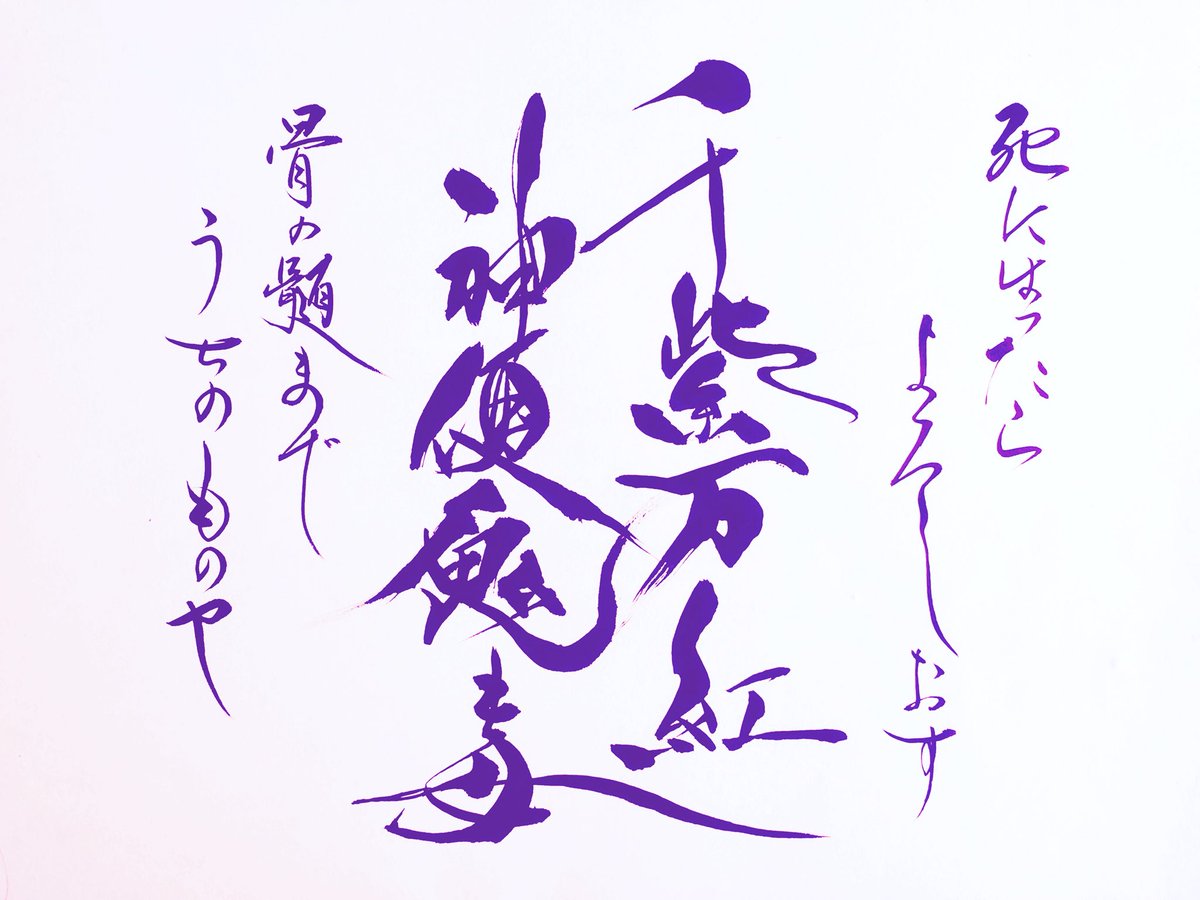 死にはったら
よろしおす
千紫万紅
神便鬼毒
骨の髄まで
うちのものや